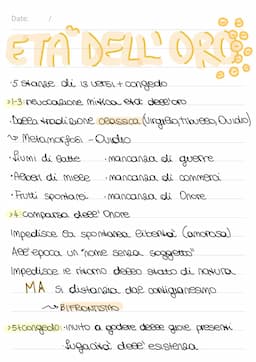 Date: /
ETÀ DELL'ORO
·5 stanze di 13 versi + congedo
>1-3: rievocazione mitica età dell'oro
·Dalla tradizione classica (Virgilio, Tibullo, Ovidio)
↳ Metamorfosi - Ovidio
·Fiumi di latte ·mancanza di guerre
·Alberi di miele ·mancanza di commerci
·Frutti spontanei ·mancanza di Onore
>4: comparsa dell'Onore
Impedisce la spontanea libertà (amorosa)
All'epoca un "nome senza soggetto"
Impedisce le ritorno dello stato di natura
MA si distanzia dal cortigianesimo
↳ BIFRONTISMO
>5+congedo: invito a godere delle gioie presenti
fugacità dell'esistenza